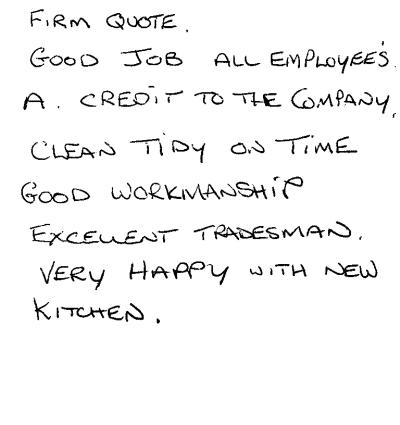 FIRM QUOTE.
GOOD JOB ALL EMPLOYEE'S.
A. CREDIT TO THE COMPANY.
CLEAN TIDY ON TIME
GOOD WORKMANSHIP
EXCELLENT TRADESMAN.
VERY HAPPY WITH NEW
KITCHEN.